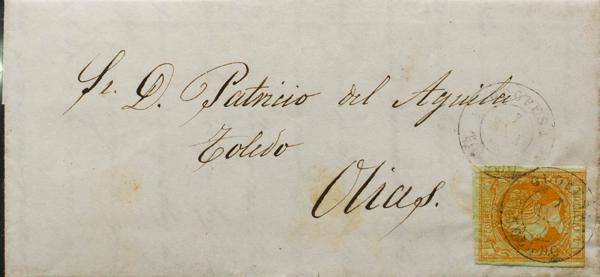 Sr. D. Patricio del Aguila
Toledo
Olias.